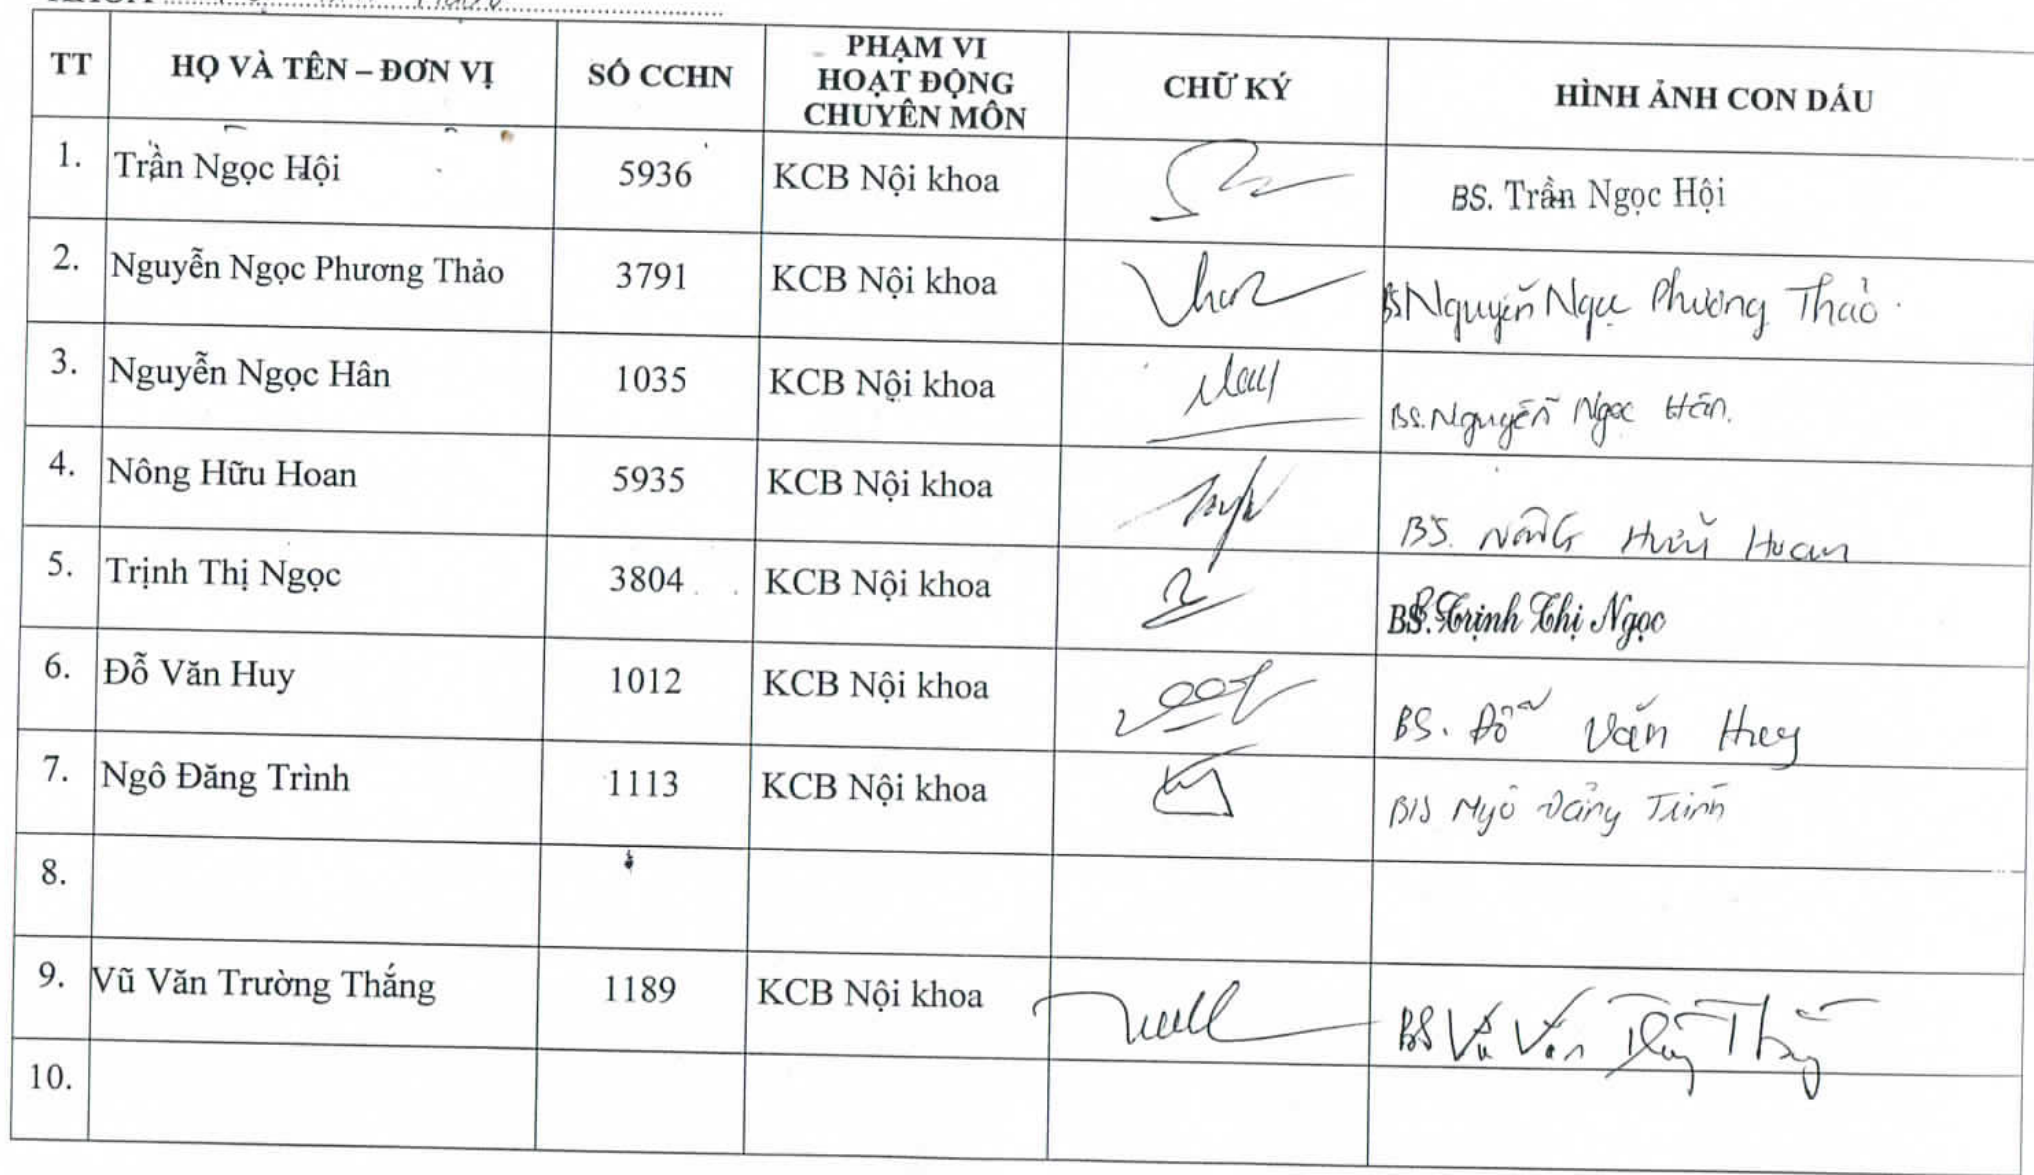 TT HỌ VÀ TÊN – ĐƠN VỊ SỐ CCHN PHẠM VI HOẠT ĐỘNG CHUYÊN MÔN CHỮ KÝ HÌNH ẢNH CON DẤU
1. Trần Ngọc Hội 5936 KCB Nội khoa BS. Trần Ngọc Hội
2. Nguyễn Ngọc Phương Thảo 3791 KCB Nội khoa BS Nguyễn Ngọc Phương Thảo.
3. Nguyễn Ngọc Hân 1035 KCB Nội khoa BS. Nguyễn Ngọc Hân.
4. Nông Hữu Hoan 5935 KCB Nội khoa BS. Nông Hữu Hoan
5. Trịnh Thị Ngọc 3804 KCB Nội khoa BS. Trịnh Thị Ngọc
6. Đỗ Văn Huy 1012 KCB Nội khoa BS. Đỗ Văn Huy
7. Ngô Đăng Trình 1113 KCB Nội khoa BS Ngô Đăng Trình
8.
9. Vũ Văn Trường Thắng 1189 KCB Nội khoa BS Vũ Văn Trường Thắng
10.